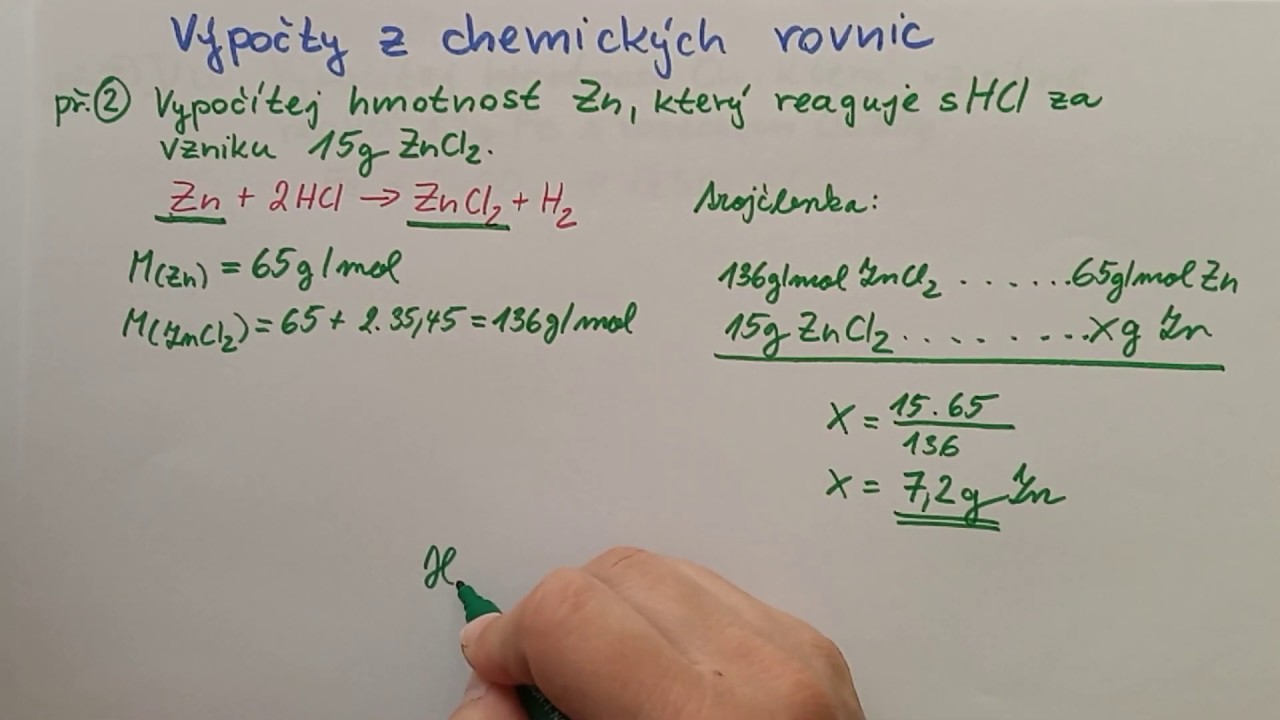 Výpočty z chemických rovnic
př. ② Vypočítej hmotnost Zn, který reaguje s HCl za
vzniku 15g ZnCl₂.
Zn + 2HCl → ZnCl₂ + H₂
M(Zn) = 65g/mol
M(ZnCl₂) = 65 + 2.35,45 = 136g/mol
trojčlenka:
136g/mol ZnCl₂ . . . . . . 65g/mol Zn
15g ZnCl₂ . . . . . . . . . X g Zn
X = 15.65 / 136
X = 7,2g Zn
H